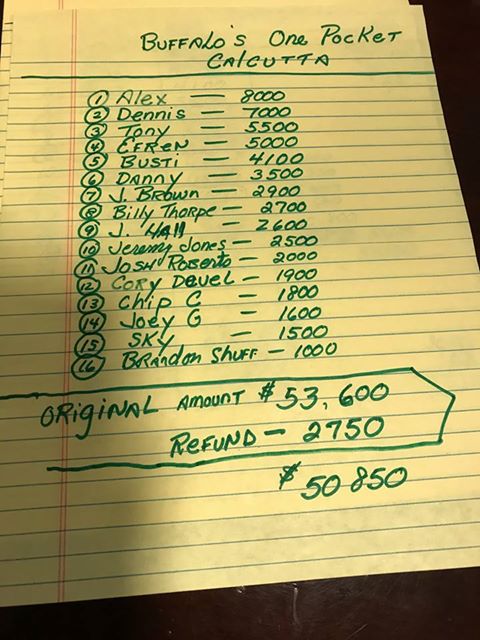 BUFFALO'S ONE POCKET
CALCUTTA
1 Alex — 8000
2 Dennis — 7000
3 Tony — 5500
4 EFREN — 5000
5 BUSTI — 4100
6 DANNY — 3500
7 J. BROWN — 2900
8 Billy Thorpe — 2700
9 J. HAll — 2600
10 Jeremy Jones — 2500
11 JOSH ROBERTO — 2000
12 CORY DEUEL — 1900
13 CHIP C — 1800
14 JOEY G — 1600
15 SKY — 1500
16 BRANDON SHUFF — 1000
ORIGINAL AMOUNT $53,600
REFUND — 2750
$50850